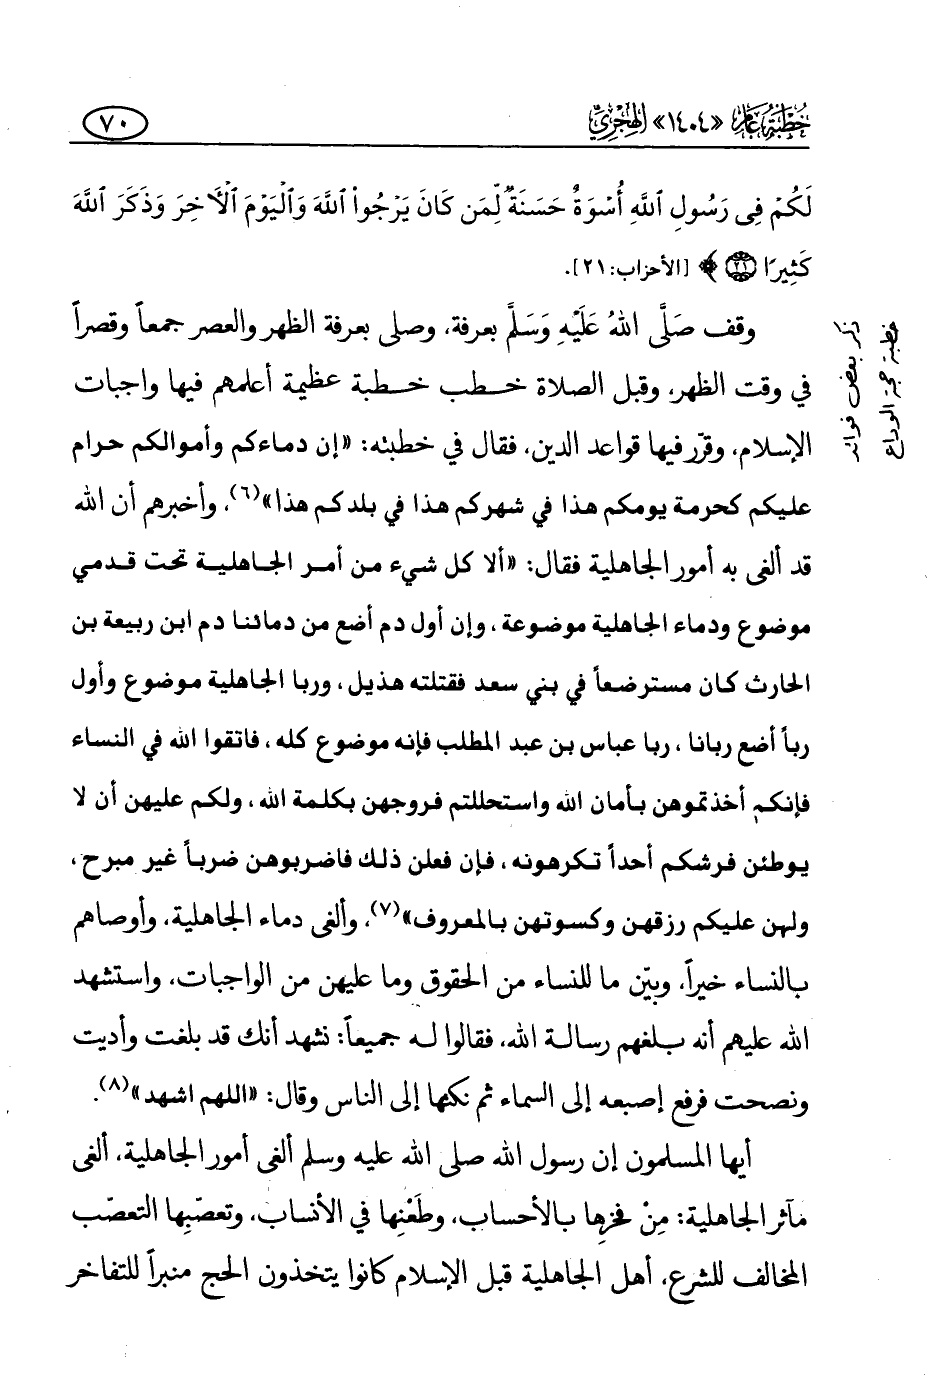 خُطْبَةُ عَامِ «١٤٠٤» الهِجْرِيِّ
٧٠
لَكُمْ فِى رَسُولِ ٱللَّهِ أُسْوَةٌ حَسَنَةٌ لِّمَن كَانَ يَرْجُوا۟ ٱللَّهَ وَٱلْيَوْمَ ٱلْآخِرَ وَذَكَرَ ٱللَّهَ
كَثِيرًا ٢١﴾ [الأحزاب: ٢١].
وقف صَلَّى اللهُ عَلَيْهِ وَسَلَّمَ بعرفة، وصلى بعرفة الظهر والعصر جمعاً وقصراً
في وقت الظهر، وقبل الصلاة خطب خطبة عظيمة أعلمهم فيها واجبات
الإسلام، وقرّر فيها قواعد الدين، فقال في خطبته: «إن دماءكم وأموالكم حرام
عليكم كحرمة يومكم هذا في شهركم هذا في بلدكم هذا»(٦)، وأخبرهم أن الله
قد ألغى به أمور الجاهلية فقال: «ألا كل شيء من أمر الجاهلية تحت قدمي
موضوع ودماء الجاهلية موضوعة، وإن أول دم أضع من دمائنا دم ابن ربيعة بن
الحارث كان مسترضعاً في بني سعد فقتلته هذيل، وربا الجاهلية موضوع وأول
رباً أضع ربانا، ربا عباس بن عبد المطلب فإنه موضوع كله، فاتقوا الله في النساء
فإنكم أخذتموهن بأمان الله واستحللتم فروجهن بكلمة الله، ولكم عليهن أن لا
يوطئن فرشكم أحداً تكرهونه، فإن فعلن ذلك فاضربوهن ضرباً غير مبرح،
ولهن عليكم رزقهن وكسوتهن بالمعروف»(٧)، وألغى دماء الجاهلية، وأوصاهم
بالنساء خيراً، وبيّن ما للنساء من الحقوق وما عليهن من الواجبات، واستشهد
الله عليهم أنه بلغهم رسالة الله، فقالوا له جميعاً: نشهد أنك قد بلغت وأديت
ونصحت فرفع إصبعه إلى السماء ثم نكها إلى الناس وقال: «اللهم اشهد»(٨).
أيها المسلمون إن رسول الله صلى الله عليه وسلم ألغى أمور الجاهلية، ألغى
مآثر الجاهلية: مِنْ فخرِها بالأحساب، وطَعْنِها في الأنساب، وتعصّبِها التعصّب
المخالف للشرع، أهل الجاهلية قبل الإسلام كانوا يتخذون الحج منبراً للتفاخر
ذكر بعض فوائد
خطبة حجة الوداع